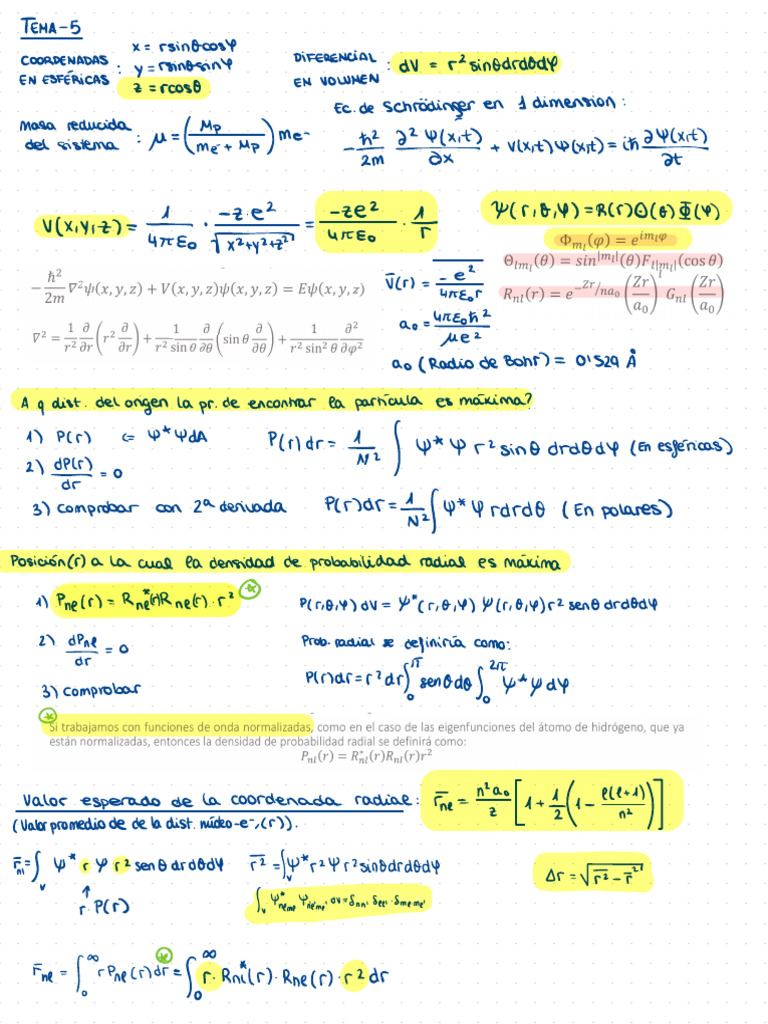 TEMA-5
COORDENADAS EN ESFÉRICAS : x = rsinθcosφ
y = rsinθsinφ
z = rcosθ
DIFERENCIAL EN VOLUMEN : dV = r² sinθ dr dθ dφ
Ec. de Schrödinger en 1 dimension :
masa reducida del sistema : μ = (Mp / (me⁻ + Mp)) me⁻
-ħ²/2m ∂²Ψ(x,t)/∂x + V(x,t)Ψ(x,t) = iħ ∂Ψ(x,t)/∂t
V(x,y,z) = 1/4πε₀ · -z·e²/√(x²+y²+z²) = -ze²/4πε₀ · 1/r
Ψ(r,θ,φ) = R(r)Θ(θ)Φ(φ)
Φ_ml(φ) = e^(im_lφ)
Θ_lml(θ) = sin^|ml|(θ)F_l|ml|(cos θ)
R_nl(r) = e^(-Zr/na₀) (Zr/a₀)^l G_nl (Zr/a₀)
-ħ²/2m ∇²ψ(x,y,z) + V(x,y,z)ψ(x,y,z) = Eψ(x,y,z)
V̄(r) = -e²/4πε₀r
∇² = 1/r² ∂/∂r (r² ∂/∂r) + 1/(r² sin θ) ∂/∂θ (sin θ ∂/∂θ) + 1/(r² sin² θ) ∂²/∂φ²
a₀ = 4πε₀ħ²/μe²
a₀ (Radio de Bohr) = 0'529 Å
A q dist. del origen la pr. de encontrar la partícula es máxima?
1) P(r) ⇐ Ψ*ΨdA
P(r)dr = 1/N² ∫ Ψ*Ψ r² sinθ dr dθ dφ (En esféricas)
2) dP(r)/dr = 0
3) comprobar con 2ª derivada
P(r)dr = 1/N² ∫ Ψ*Ψ r dr dθ (En polares)
Posición (r) a la cual la densidad de probabilidad radial es máxima
1) Pne(r) = Rne*(r)Rne(r)·r²
P(r,θ,φ) dV = Ψ*(r,θ,φ) Ψ(r,θ,φ) r² senθ dr dθ dφ
2) dPne/dr = 0
Prob. radial se definiría como:
P(r)dr = r²dr ∫₀^π senθ dθ ∫₀^2π Ψ*Ψ dφ
3) comprobar
Si trabajamos con funciones de onda normalizadas, como en el caso de las eigenfunciones del átomo de hidrógeno, que ya
están normalizadas, entonces la densidad de probabilidad radial se definirá como:
P_nl(r) = R*_nl(r)R_nl(r)r²
Valor esperado de la coordenada radial: r̄ne = n²a₀/z [1 + 1/2 (1 - ℓ(ℓ+1)/n²)]
(Valor promedio de de la dist. núcleo-e⁻, (r)).
r̄nl = ∫v Ψ* r Ψ r² senθ dr dθ dφ
r̄² = ∫v Ψ* r² Ψ r² sinθ dr dθ dφ
Δr = √(r̄² - r̄²)
↑
r·P(r)
∫v Ψ*neme Ψn'e'me' dV = δnn' · δee' · δme me'
r̄ne = ∫₀^∞ r Pne(r) dr = ∫₀^∞ r · Rnl*(r) · Rne(r) · r² dr